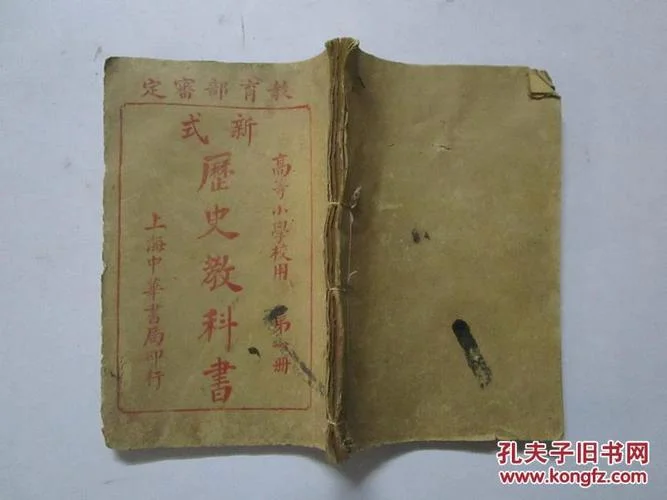 教育部審定
新式
歷史教科書
高等小學校用 第 册
上海中華書局印行
孔夫子旧书网
www.kongfz.com